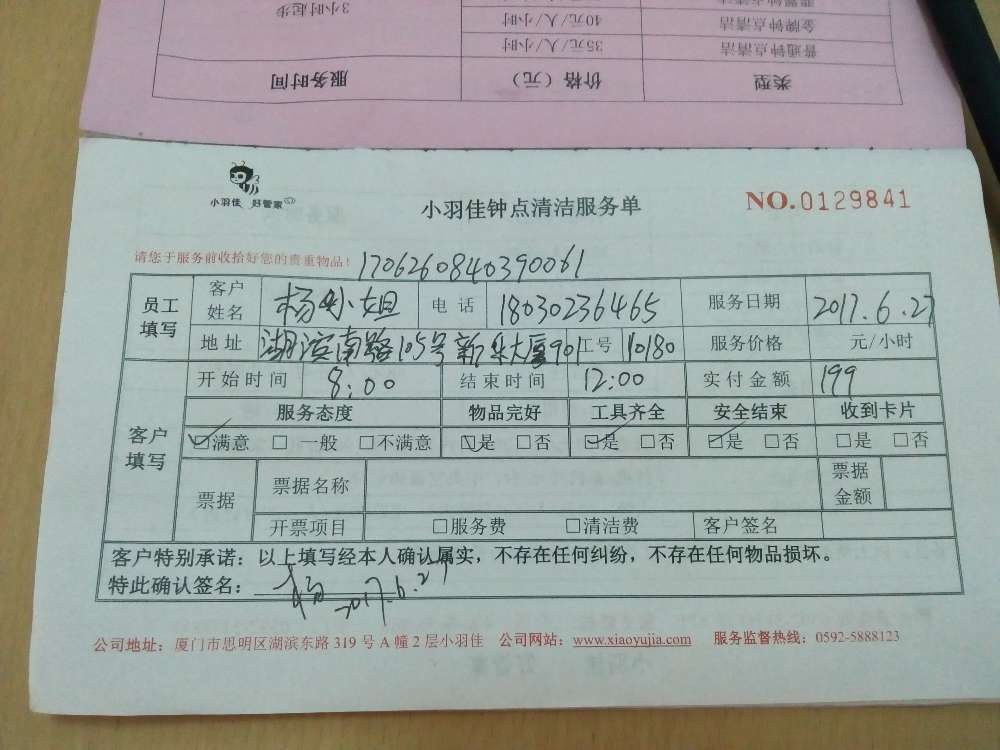 3小时起步
40元/人/小时
金牌钟点清洁
35元/人/小时
普通钟点清洁
服务时间
价格（元）
类型
小羽佳 好管家
小羽佳钟点清洁服务单
NO.0129841
请您于服务前收拾好您的贵重物品！ 1706260840390061
员工填写 客户姓名 杨小姐 电话 18030236465 服务日期 2017.6.27
地址 湖滨南路105号新华大厦901 工号 10180 服务价格 元/小时
客户填写 开始时间 8:00 结束时间 12:00 实付金额 199
服务态度 物品完好 工具齐全 安全结束 收到卡片
☑满意 □ 一般 □不满意 ☑是 □否 ☑是 □否 ☑是 □否 □是 □否
票据 票据名称 票据金额
开票项目 □服务费 □清洁费 客户签名
客户特别承诺：以上填写经本人确认属实，不存在任何纠纷，不存在任何物品损坏。
特此确认签名： 杨 2017.6.27
公司地址：厦门市思明区湖滨东路 319 号 A 幢 2 层小羽佳 公司网站：www.xiaoyujia.com 服务监督热线：0592-5888123